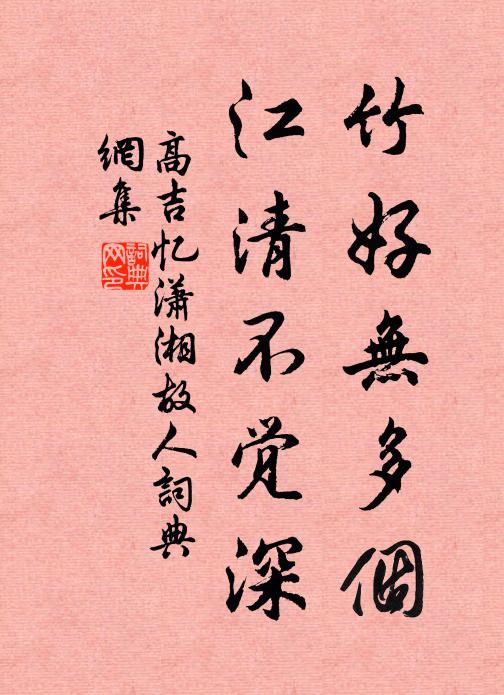 竹好無多個
江清不觉深
高吉忆瀟湘故人詞典
網集
詞典网印